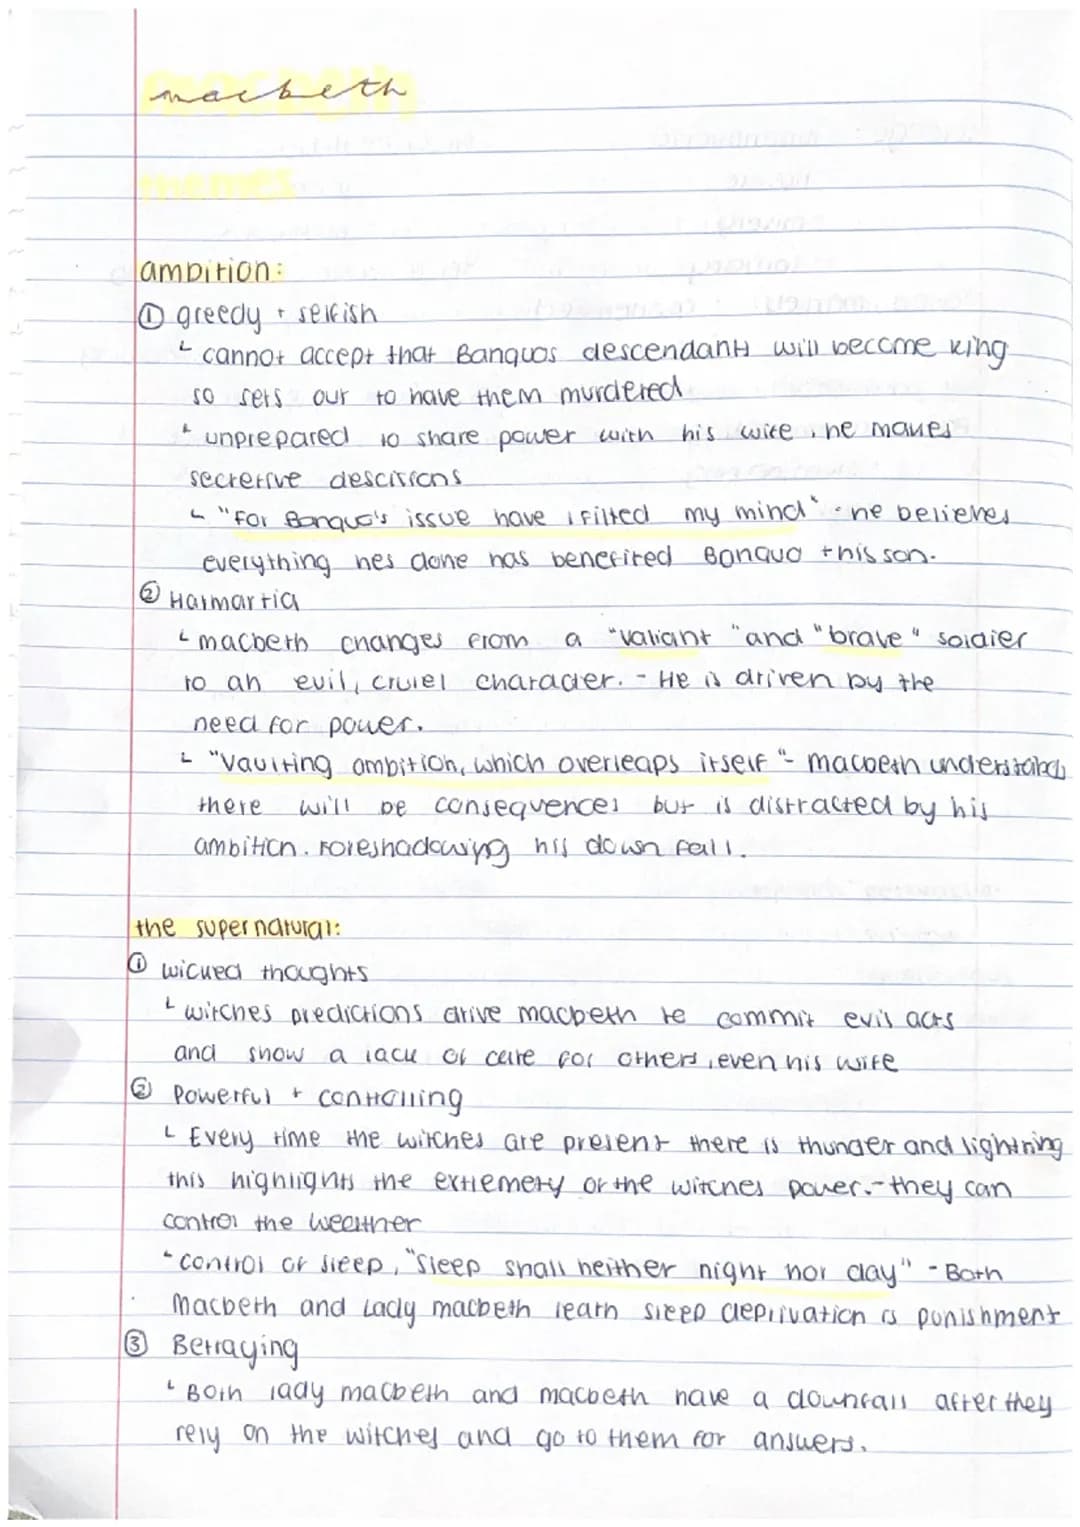 macbeth
themes
ambition:
① greedy + selfish
↳ cannot accept that Banquos descendants will become king
so sets out to have them murdered
↳ unprepared to share power with his wife, he makes
secretive descisions
↳ "For Banquo's issue have I filted my mind" - he believes
everything hes done has benefited Banquo + his son.
② Harmartia
↳ macbeth changes from a "valiant" and "brave" soldier
to an evil, cruel character. - He is driven by the
need for power.
↳ "Vaulting ambition, which overleaps itself" - macbeth understands
there will be consequences but is distracted by his
ambition. Foreshadowing his down fall.
the supernatural:
① wicked thoughts
↳ witches predictions drive macbeth to commit evil acts
and show a lack of care for others, even his wife
② Powerful + controlling
↳ Every time the witches are present there is thunder and lightning
this highlights the extremety of the witches power. - they can
control the weather
↳ control of sleep, "Sleep shall neither night nor day" - Both
Macbeth and Lady macbeth learn sleep deprivation is punishment
③ Betraying
↳ Both lady macbeth and macbeth have a downfall after they
rely on the witches and go to them for answers.